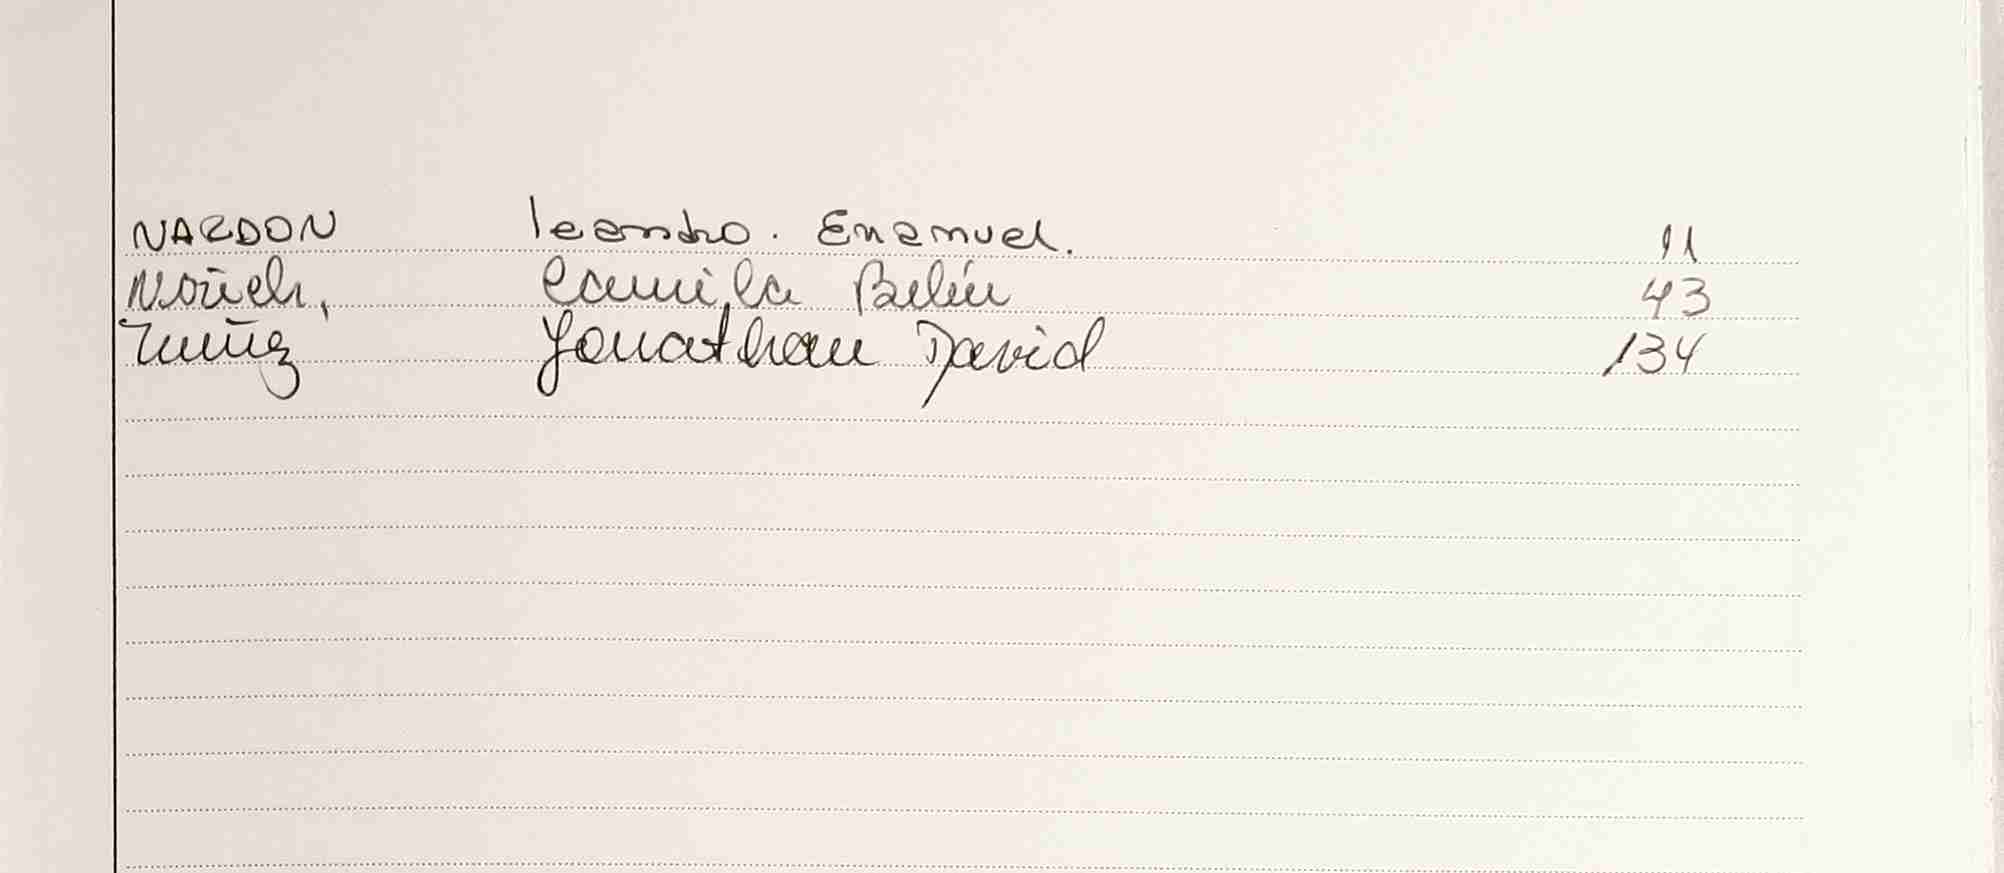 NARDON leandro. Enamuel. 11
Camila Belén 43
Nuñez Jonathan David 134